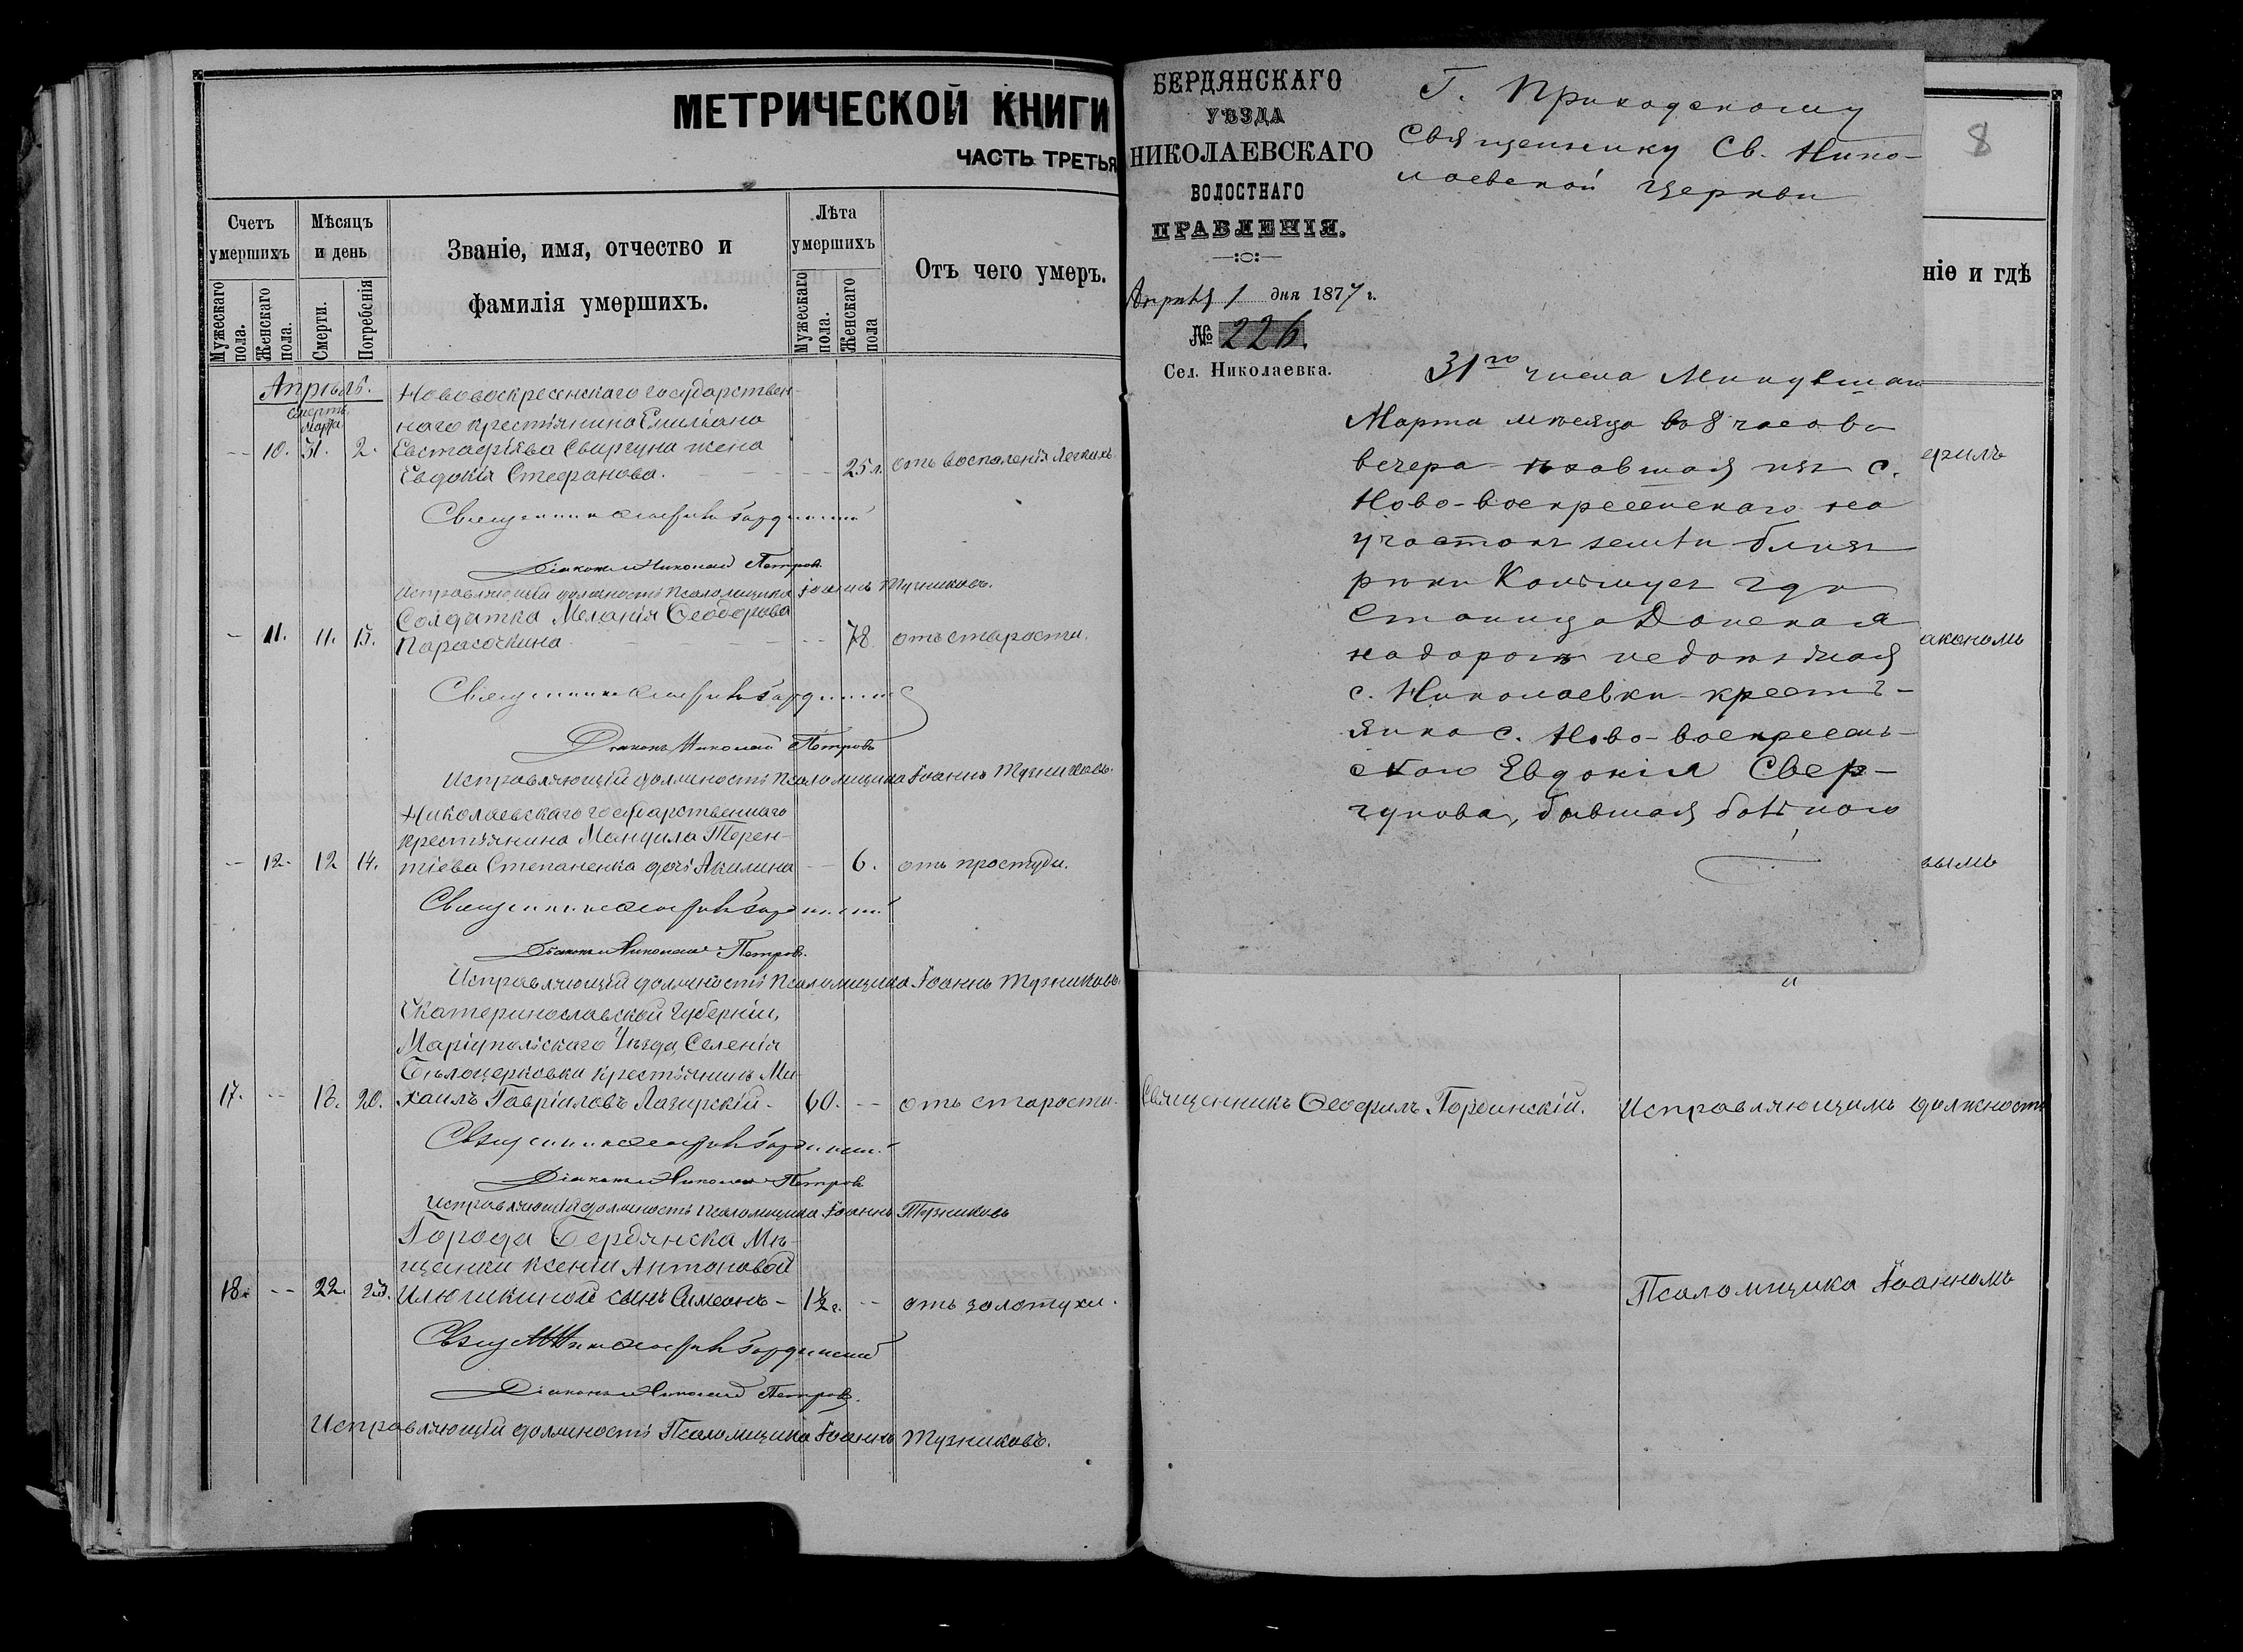 МЕТРИЧЕСКОЙ КНИГИ
ЧАСТЬ ТРЕТЬЯ
Счетъ умершихъ
Мужескаго пола.
Женскаго пола.
Мѣсяцъ и день
Смерти.
Погребенія
Званіе, имя, отчество и
фамилія умершихъ.
Лѣта умершихъ
Мужескаго пола.
Женскаго пола
Отъ чего умеръ.
Апрѣль.
Смерть
Марта
Нововоскресенскаго государствен-
наго крестьянина Емиліана
-- 10. 31. 2. Евстафіева Свиргуна жена
Евдокія Стефанова. -- 25 л. отъ воспаленія легкихъ
Священникъ Ѳеофилъ Гординскій
Діаконъ Николай Петровъ
Исправляющій должность Псаломщика Іоаннъ Тузниковъ.
Солдатка Меланія Ѳеодорова
-- 11. 11. 13. Парасочкина -- 78 отъ старости.
Священникъ Ѳеофилъ Гординскій
Діаконъ Николай Петровъ
Исправляющій должность Псаломщика Іоаннъ Тузниковъ.
Николаевскаго государственнаго
крестьянина Мануила Терен-
-- 12. 12 14. тіева Степаненка дочь Акилина -- 6. отъ простуди.
Священникъ Ѳеофилъ Гординскій
Діаконъ Николай Петровъ.
Исправляющій должность Псаломщика Іоаннъ Тузниковъ
Екатеринославской Губерніи,
Маріупольскаго Уѣзда, Селенія
Бѣлоцерковки крестьянинъ Ми-
17. -- 18. 20. хаилъ Гавріиловъ Лазирскій - 60. -- отъ старости.
Священникъ Ѳеофилъ Гординскій
Діаконъ Николай Петровъ
Исправляющій должность Псаломщика Іоаннъ Тузниковъ
Города Бердянска Мѣ-
щанки Ксеніи Антоновой
18. -- 22. 23. Илюшкиной сынъ Симеонъ - 1½ г. -- отъ золотухи.
Священникъ Ѳеофилъ Гординскій
Діаконъ Николай Петровъ.
Исправляющій должность Псаломщика Іоаннъ Тузниковъ.
БЕРДЯНСКАГО
УѢЗДА
НИКОЛАЕВСКАГО
ВОЛОСТНАГО
ПРАВЛЕНІЯ.
Апрѣля 1 дня 1877 г.
№ 226.
Сел. Николаевка.
Г. Приходскому
Священнику Св. Нико-
лаевской Церкви
31го числа Минувшаго
Марта мѣсяца в 8 часовъ
вечера ѣхавшая изъ с.
Ново-воскресенскаго на
участокъ земли близь
рѣки гдѣ
Станица Донская
на дорогѣ недоѣзжая
с. Николаевки кресть-
янка с. Ново-воскресен-
ской Евдокія Свер-
гунова, бывшая больною
8
ніе и гдѣ
офилъ
акономъ
вымъ
и
Священникъ Ѳеофилъ Гординскій.
Исправляющимъ должность
Псаломщика Іоанномъ